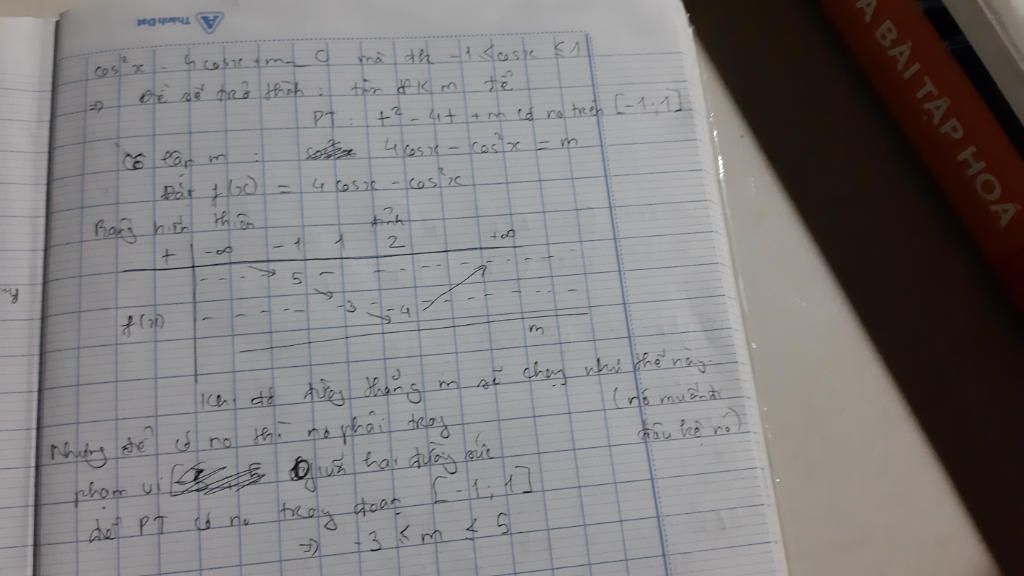 Thành Đạt
cos²x - 4cosx + m = 0 mà đk -1 ≤ cosx ≤ 1
=> Đề sẽ trở thành: tìm ĐK m để
PT: t² - 4t + m có no trên [-1;1]
Cô lập m: 4cosx - cos²x = m
Đặt f(x) = 4cosx - cos²x
Bảng biến thiên đỉnh
t -∞ -1 1 2 +∞
5
f(x) -3 -4
m
Khi đó đường thẳng m sẽ chạy như thế này.
(nó muốn đi đâu kệ nó)
Nhưng để có no thì no phải trong
phạm vi giữa hai đường đứt
để PT có no trong đoạn [-1;1]
=> -3 ≤ m ≤ 5
BÀI TẬP HOÁ